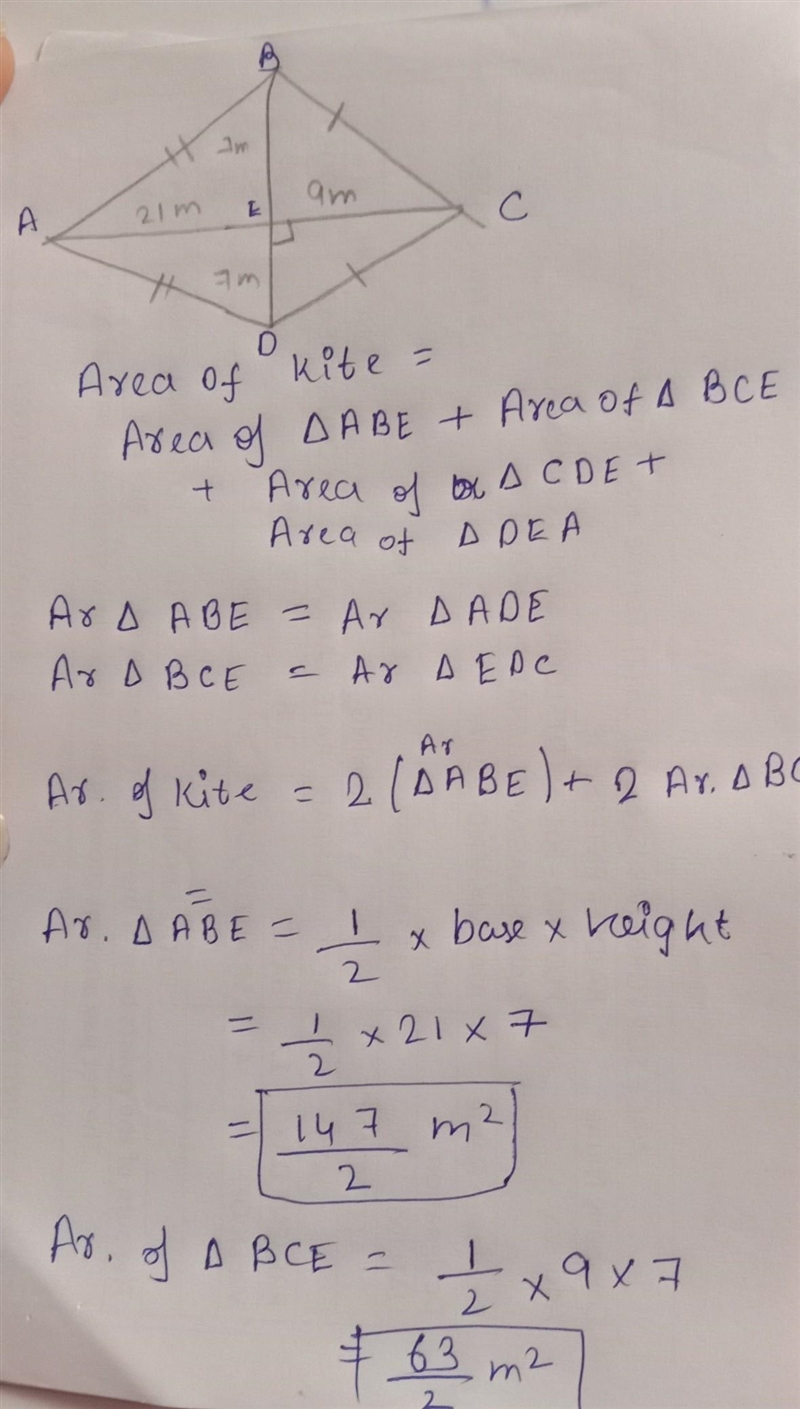 B
7m
21m E 9m
A C
7m
D
Area of Kite =
Area of Δ ABE + Area of Δ BCE
+ Area of Δ CDE +
Area of Δ DEA
Ar Δ ABE = Ar Δ ADE
Ar Δ BCE = Ar Δ EDC
Ar. of Kite = 2 (Ar ΔABE) + 2 Ar. Δ BC
Ar. Δ ABE = 1/2 × base × height
= 1/2 × 21 × 7
= 147/2 m²
Ar. of Δ BCE = 1/2 × 9 × 7
= 63/2 m²